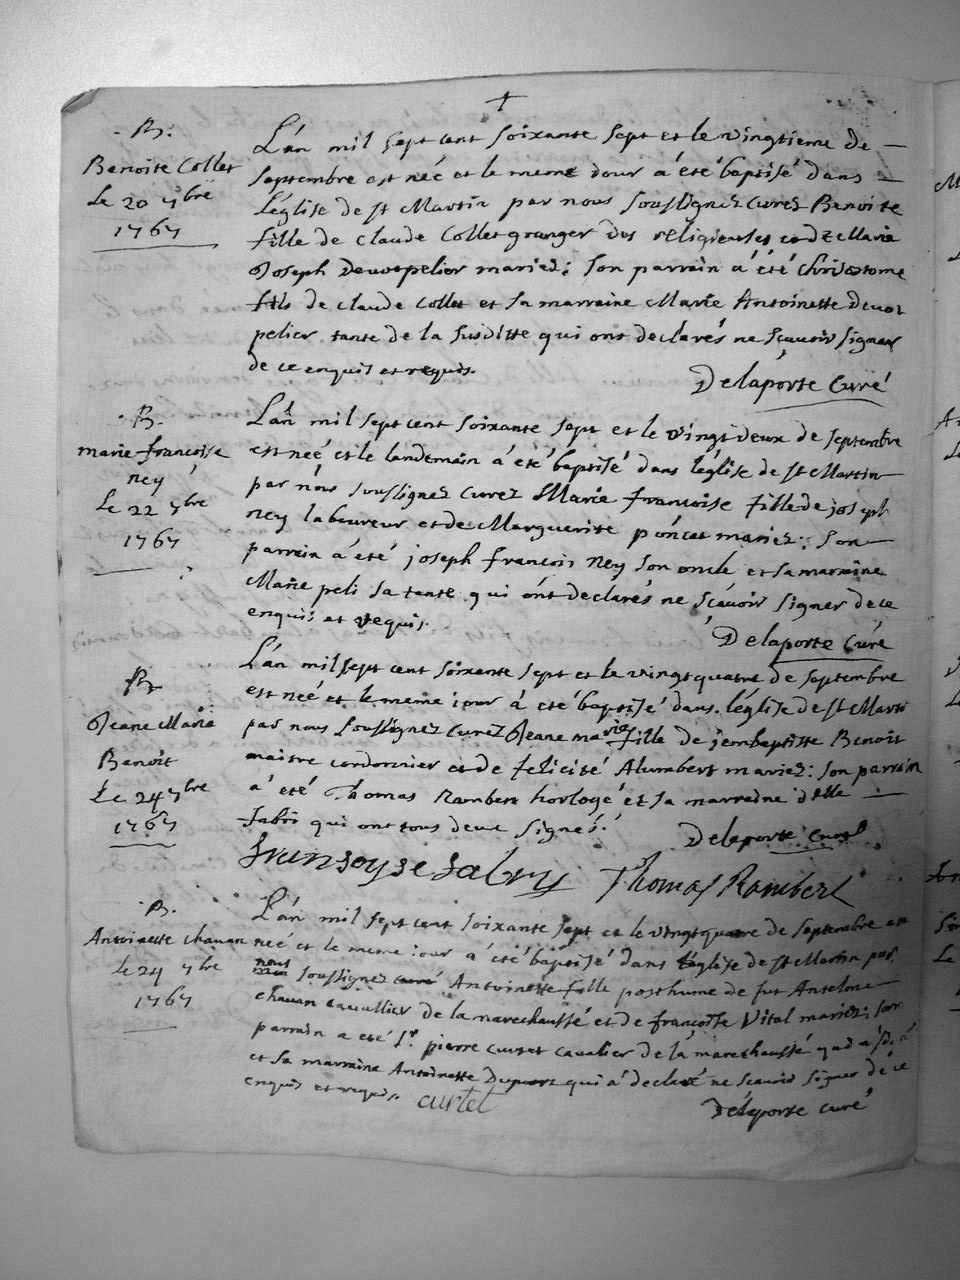 +
B.
Benoite Collet
Le 20 7bre
1767
L'an mil sept cent soixante sept et le vingtieme de
septembre est néé et le meme jour á été baptisé dans
L'église de st Martin par nous soussignez curez Benoite
fille de claude Collet granger des religieuses et de Marie
Joseph Devotpelier mariez; son parrain á été chrisostome
fils de claude collet et sa marraine Marie Antoinette Devot
pelier tante de la susditte qui ont declarés ne scavoir signer
de ce enquis et requis.
Delaporte Curé
B.
marie francoise
ney
Le 22 7bre
1767
L'an mil sept cent soixante sept et le vingt deux de septembre
est néé et le landemain á été baptisé dans l'église de st Martin
par nous soussignez curez Marie francoise fille de joseph
ney laboureur et de Marguerite poncet mariez; son
parrain á été joseph francois ney son oncle et sa marraine
Marie peli sa tante qui ont declarés ne scavoir signer de ce
enquis et requis.
Delaporte Curé
B
Jeane Marie
Benoit
Le 24 7bre
1767
L'an mil sept cent soixante sept et le vingt quatre de septembre
est néé et le meme jour á été baptisé dans l'église de st Marti
par nous soussignez curez Jeane marie fille de jeanbaptitte Benoit
maitre cordonnier et de felicité Alumbert mariez; son parrin
á été Thomas Rambert horlogé et sa marraine dlle
fabri qui ont tous deux signés.
Delaporte Curé
fransoyse fabry Thomas Rambert
B.
Antoinette chavan
Le 24 7bre
1767
L'an mil sept cent soixante sept et le vingtquatre de septembre est
néé et le meme jour á été baptisé dans l'église de st Martin par
nous soussignez curé Antoinette fille posthume de fut Antelme
chavan cavallier de la marechaussé et de francoise Vital mariez; son
parrain a été sr. pierre curtet cavalier de la marechaussé
et sa marraine Antoinette Duport qui á declaré ne scavoir signer de ce
enquis et requis. curtet
Delaporte curé